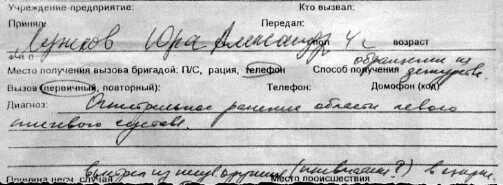 Учреждение-предприятие: Кто вызвал:
Принял: Передал:
Юра Александр пол 4 г возраст
Ф И О обращении из
Место получения вызова бригадой: П/С, рация, телефон Способ получения
Вызов (первичный, повторный): Телефон: Домофон (код)
Диагноз: Огнестрельное ранение области левого
плечевого сустава.
выстрел из (пневматика?) в спину
Причина несч. случая Место происшествия